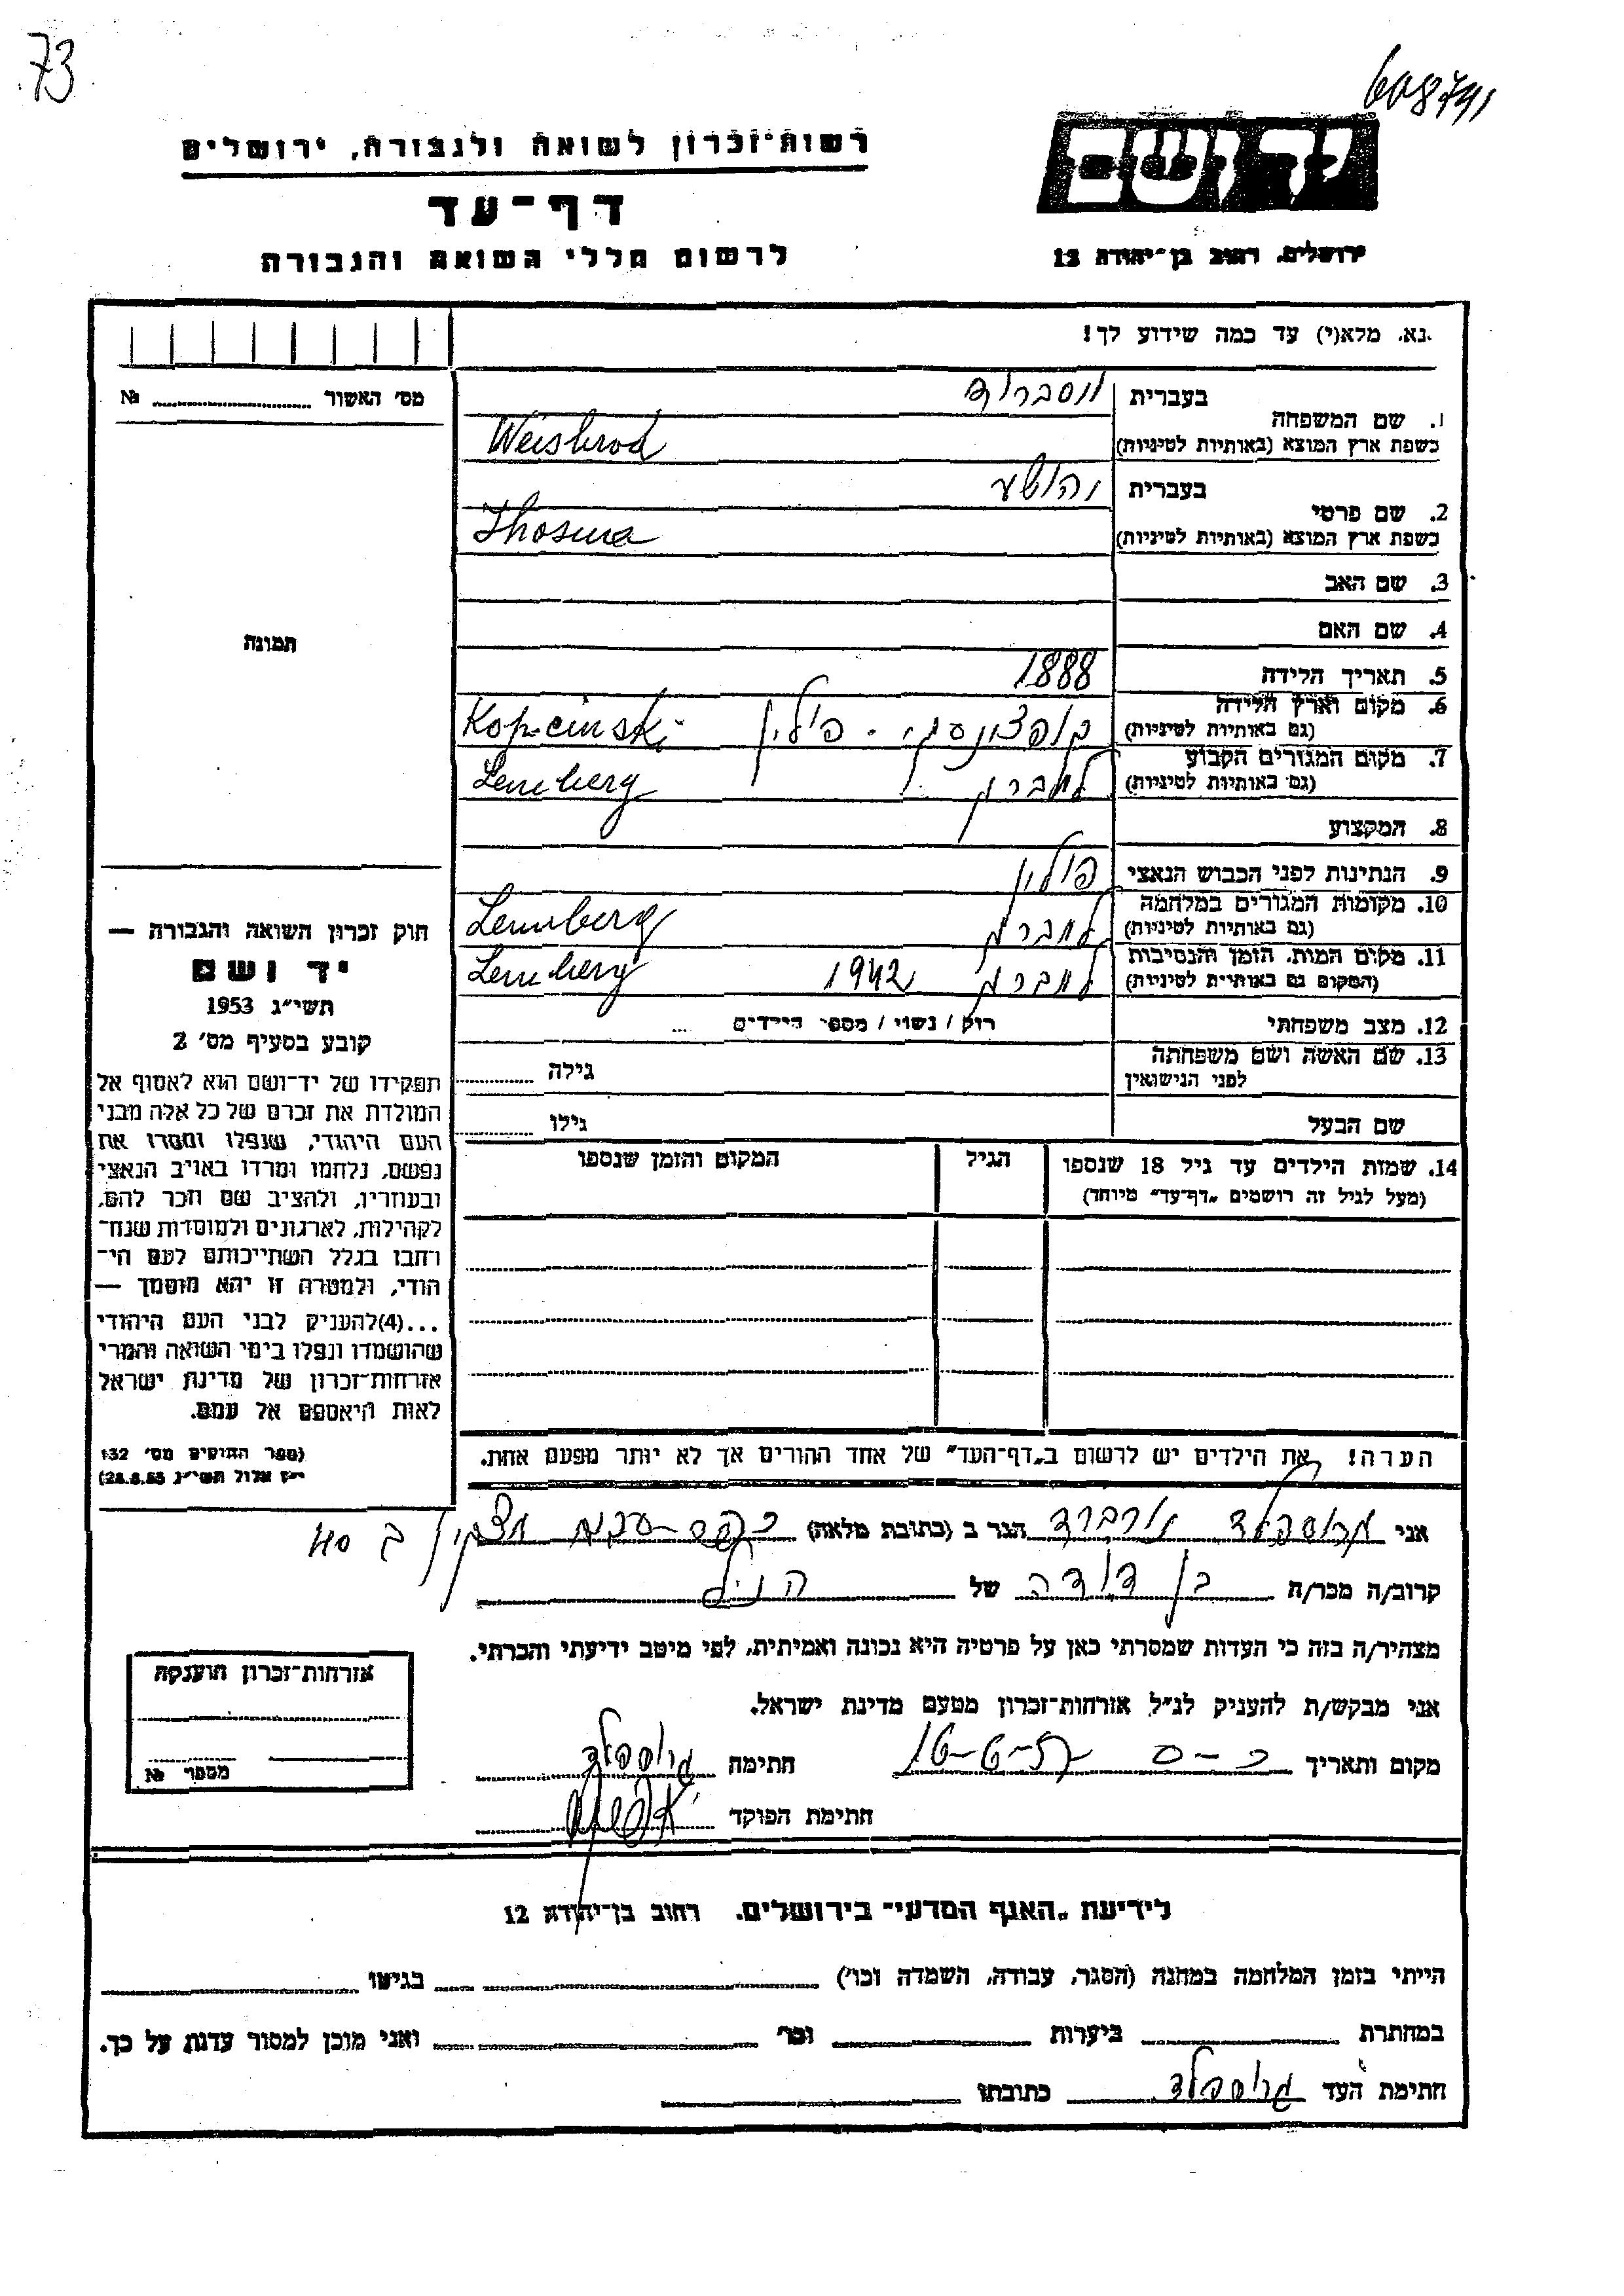 73
608741
רשות־זכרון לשואה ולגבורה, ירושלים
יד ושם
דף־עד
לרשום חללי השואה והגבורה
ירושלים, רחוב בן־יהודה 12
נא, מלא(י) עד כמה שידוע לך!
מס׳ האשור № 
1. שם המשפחה
בעברית וסברוד
כשפת ארץ המוצא (באותיות לטיניות) Weisbrod
2. שם פרטי
בעברית יהושע
כשפת ארץ המוצא (באותיות לטיניות) Jhosua
3. שם האב
4. שם האם
5. תאריך הלידה 1888
6. מקום וארץ הלידה
(גם באותיות לטיניות) קופצינסקי - פולין Kopcinski
7. מקום המגורים הקבוע
(גם באותיות לטיניות) למברג Lemberg
8. המקצוע
9. הנתינות לפני הכבוש הנאצי פולין
10. מקומות המגורים במלחמה
(גם באותיות לטיניות) למברג Lemberg
11. מקום המות, הזמן והנסיבות
(המקום גם באותיות לטיניות) למברג 1942 Lemberg
12. מצב משפחתי רוק / נשוי / מספר הילדים ...
13. שם האשה ושם משפחתה
לפני הנישואין גילה
שם הבעל גילו
14. שמות הילדים עד גיל 18 שנספו הגיל המקום והזמן שנספו
(מעל לגיל זה רושמים „דף־עד״ מיוחד)
תמונה
חוק זכרון השואה והגבורה —
יד ושם
תשי״ג 1953
קובע בסעיף מס׳ 2
תפקידו של יד־ושם הוא לאסוף אל
המולדת את זכרם של כל אלה מבני
העם היהודי, שנפלו ומסרו את
נפשם, נלחמו ומרדו באויב הנאצי
ובעוזריו, ולהציב שם וזכר להם,
לקהילות, לארגונים ולמוסדות שנח־
רחבו בגלל השתייכותם לעם הי־
הודי, ולמטרה זו יהא מוסמך —
...(4)להעניק לבני העם היהודי
שהושמדו ונפלו בימי השואה והמרי
אזרחות־זכרון של מדינת ישראל
לאות היאספם אל עמם.
(ספר החוקים מס׳ 132
י״ז אלול תשי״ג 28.8.53)
הערה! את הילדים יש לרשום ב„דף־העד״ של אחד ההורים אך לא יותר מפעם אחת.
אני גרוספלד הגר ב (כתובת מלאה) ב 40
קרוב/ה מכר/ה בן דודה של הנ״ל
מצהיר/ה בזה כי העדות שמסרתי כאן על פרטיה היא נכונה ואמיתית, לפי מיטב ידיעתי והכרתי.
אני מבקש/ת להעניק לנ״ל אזרחות־זכרון מטעם מדינת ישראל.
מקום ותאריך כ-ס 16-6-57 חתימה גרוספלד
חתימת הפוקד
אזרחות־זכרון הוענקה
מספר №
לידיעת „האגף המדעי״ בירושלים, רחוב בן־יהודה 12
הייתי בזמן המלחמה במחנה (הסגר, עבודה, השמדה וכו׳) בגיטו
במחתרת ביערות וכו׳ ואני מוכן למסור עדות על כך.
חתימת העד גרוספלד כתובתו